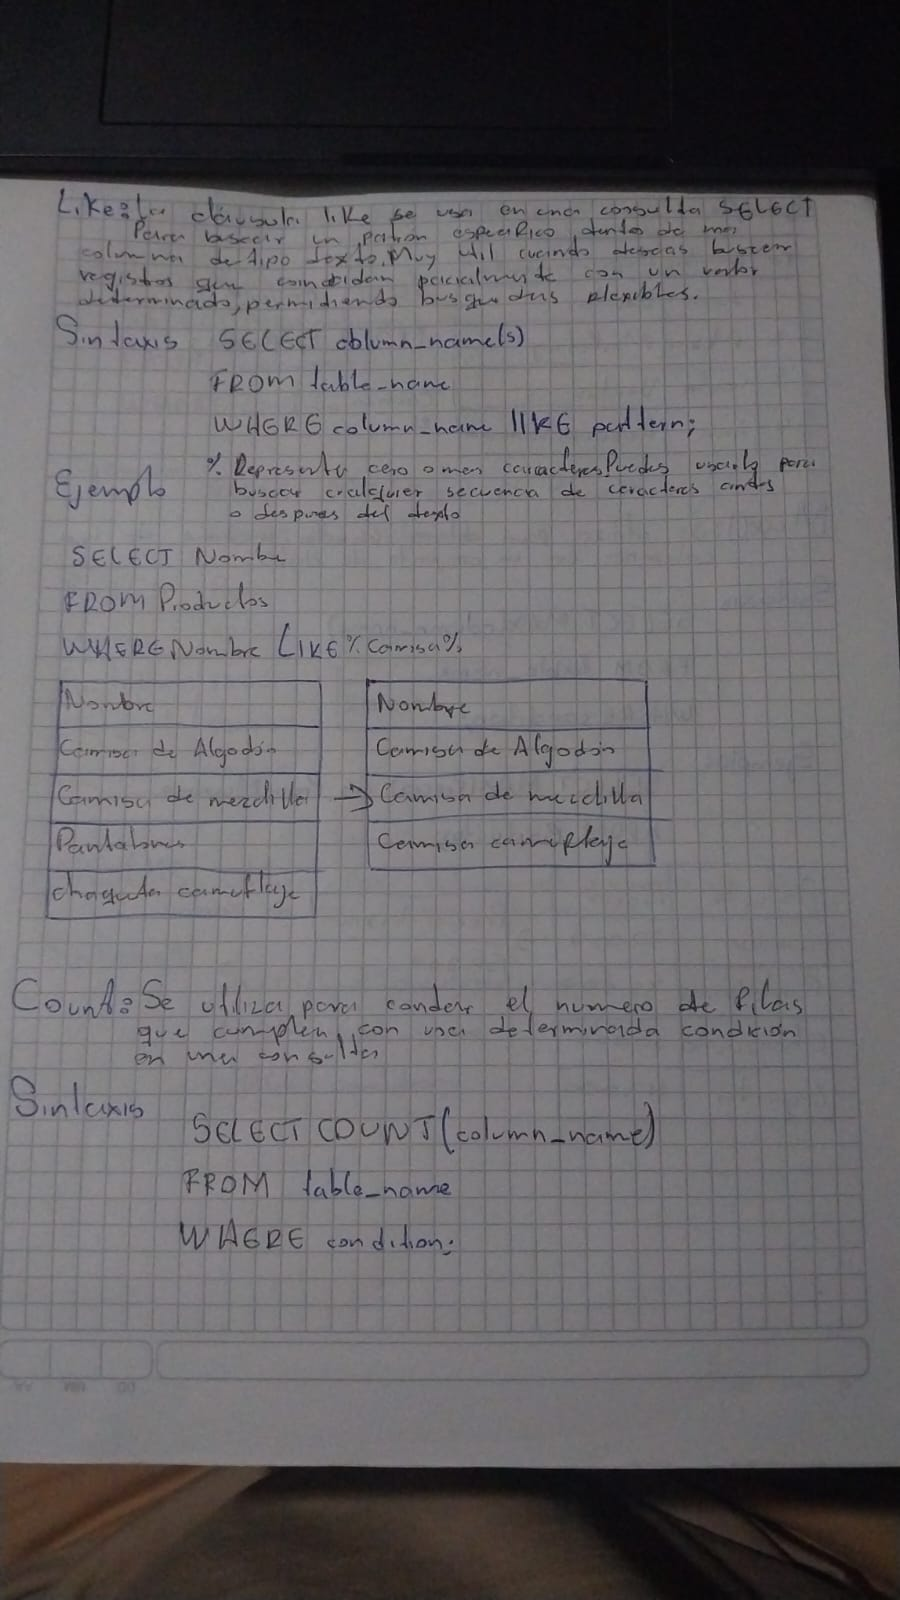 Like: La cláusula like se usa en una consulta SELECT
Para buscar un patron especifico dentro de una
columna de tipo texto. Muy util cuando deseas buscar
registros que coincidan parcialmente con un valor
determinado, permitiendo busquedas flexibles.
Sintaxis SELECT column_name(s)
FROM table_name
WHERE column_name lIKE pattern;
Ejemplo % Representa cero o mas caracteres Puedes usarlo para
buscar cualquier secuencia de caracteres antes
o despues del texto
SELECT Nombre
FROM Productos
WHERE Nombre LIKE %Camisa%
Nombre Nombre
Camisa de Algodón Camisa de Algodón
Camisa de mezclilla → Camisa de mezclilla
Pantalones Camisa camuflaje
chaqueta camuflaje
Count: Se utiliza para contar el numero de filas
que cumplen con una determinada condición
en una consulta
Sintaxis
SELECT COUNT(column_name)
FROM table_name
WHERE condition;
DD MM AA